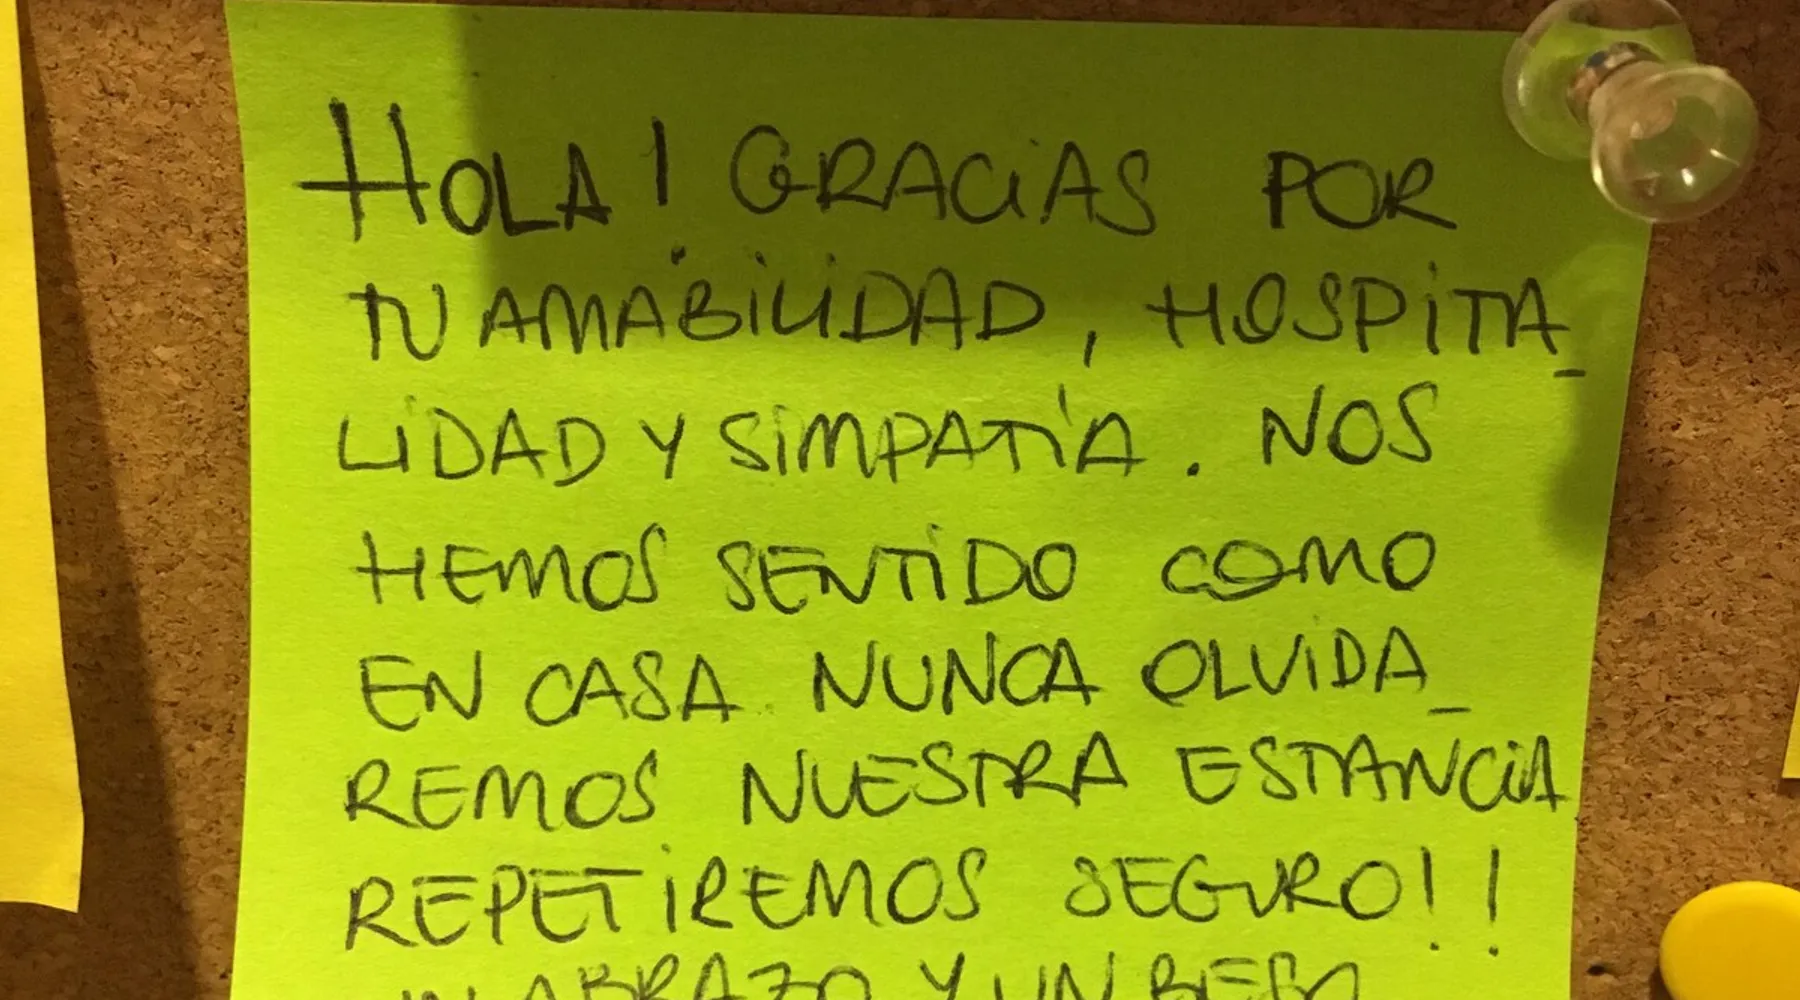 HOLA! GRACIAS POR
TU AMABILIDAD, HOSPITA_
LIDAD Y SIMPATÍA. NOS
HEMOS SENTIDO COMO
EN CASA. NUNCA OLVIDA_
REMOS NUESTRA ESTANCIA
REPETIREMOS SEGURO!!
UN ABRAZO Y UN BESO